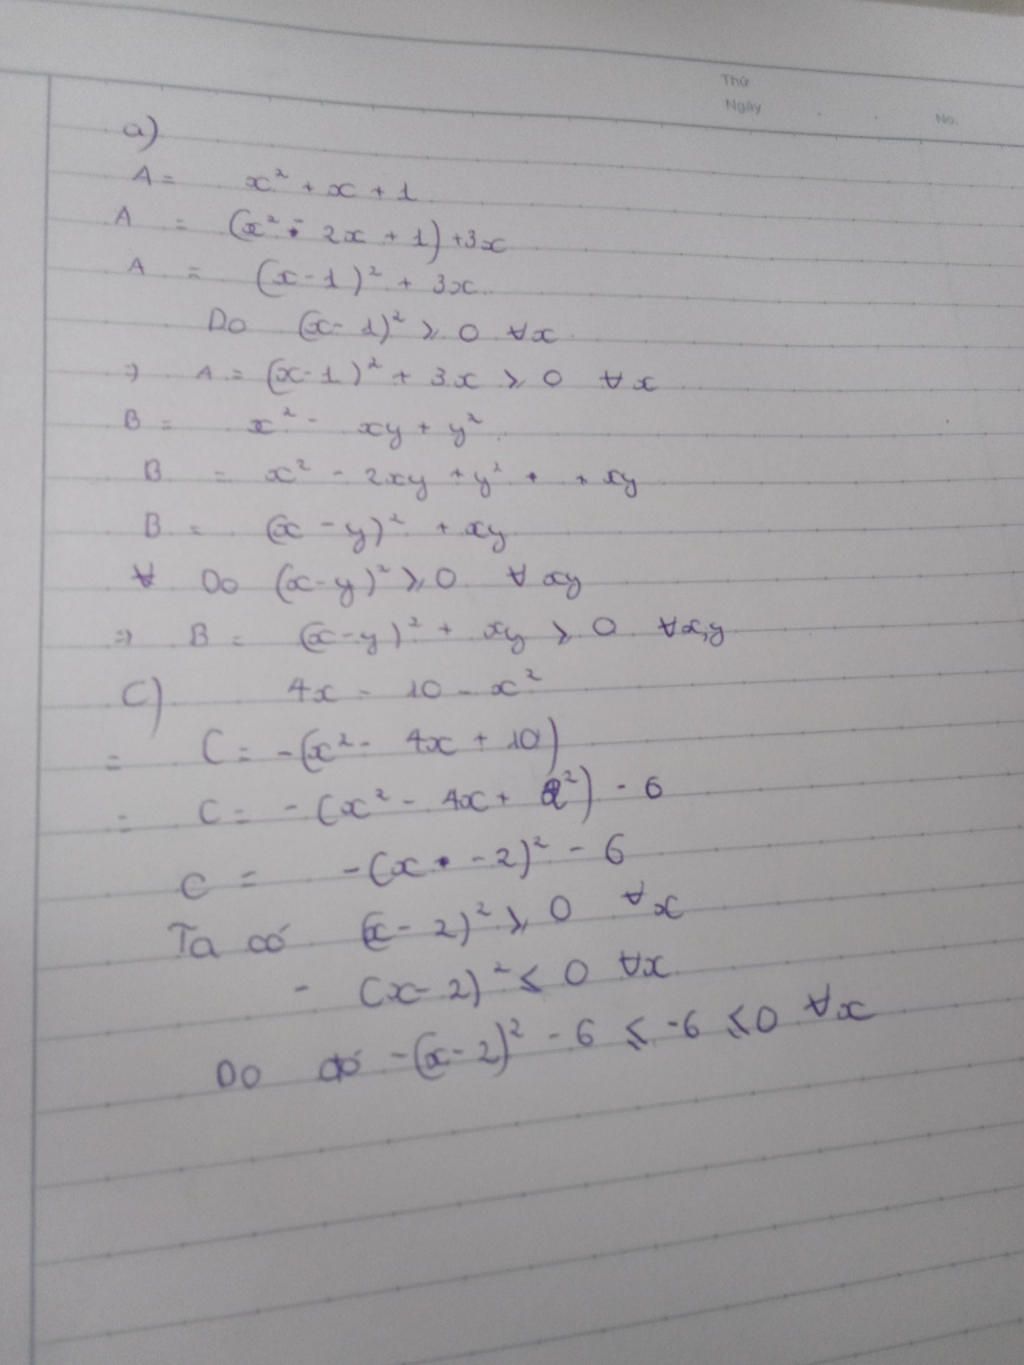 Thứ
Ngày
No.
a)
A = x² + x + 1
A = (x² - 2x + 1) + 3x
A = (x - 1)² + 3x
Do (x - 1)² ⩾ 0 ∀x
⇒ A = (x - 1)² + 3x ⩾ 0 ∀x
B = x² - xy + y²
B = x² - 2xy + y² + + xy
B = (x - y)² + xy
∀ Do (x - y)² ⩾ 0 ∀xy
⇒ B = (x - y)² + xy ⩾ 0 ∀x,y
C) 4x - 10 - x²
= C = -(x² - 4x + 10)
= C = -(x² - 4x + 2²) - 6
C = -(x - 2)² - 6
Ta có (x - 2)² ⩾ 0 ∀x
- (x - 2)² ⩽ 0 ∀x
Do đó -(x - 2)² - 6 ⩽ -6 ⩽ 0 ∀x